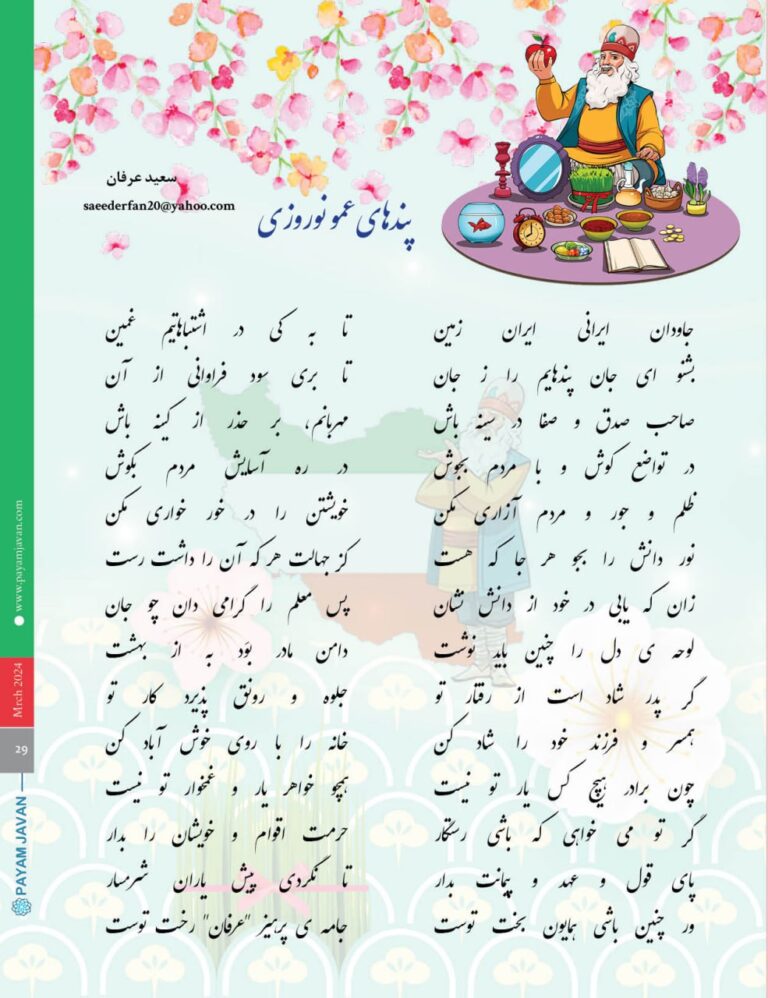 سعید عرفان
saeederfan20@yahoo.com
پندهای عمو نوروزی
جاودان ایرانی ایران زمین	تا به کی در اشتباهاتیم غمین
بشنو ای جان پندهایم را ز جان	تا بری سود فراوانی از آن
صاحب صدق و صفا در سینه باش	مهربانم، بر حذر از کینه باش
در تواضع کوش و با مردم بجوش	در ره آسایش مردم بکوش
ظلم و جور و مردم آزاری مکن	خویشتن را در خور خواری مکن
نور دانش را بجو هر جا که هست	کز جهالت هر که آن را داشت رست
زان که یابی در خود از دانش نشان	پس معلم را گرامی دان چو جان
لوحه ی دل را چنین باید نوشت	دامن مادر بود به از بهشت
گر پدر شاد است از رفتار تو	جلوه و رونق پذیرد کار تو
همسر و فرزند خود را شاد کن	خانه را با روی خوش آباد کن
چون برادر هیچ کس یار تو نیست	همچو خواهر یار و غمخوار تو نیست
گر تو می خواهی که باشی رستگار	حرمت اقوام و خویشان را بدار
پای قول و عهد و پیمانت بدار	تا نگردی پیش یاران شرمسار
ور چنین باشی همایون بخت توست	جامه ی پرهیز "عرفان" رخت توست
www.payamjavan.com
Mrch 2024
29
PAYAM JAVAN